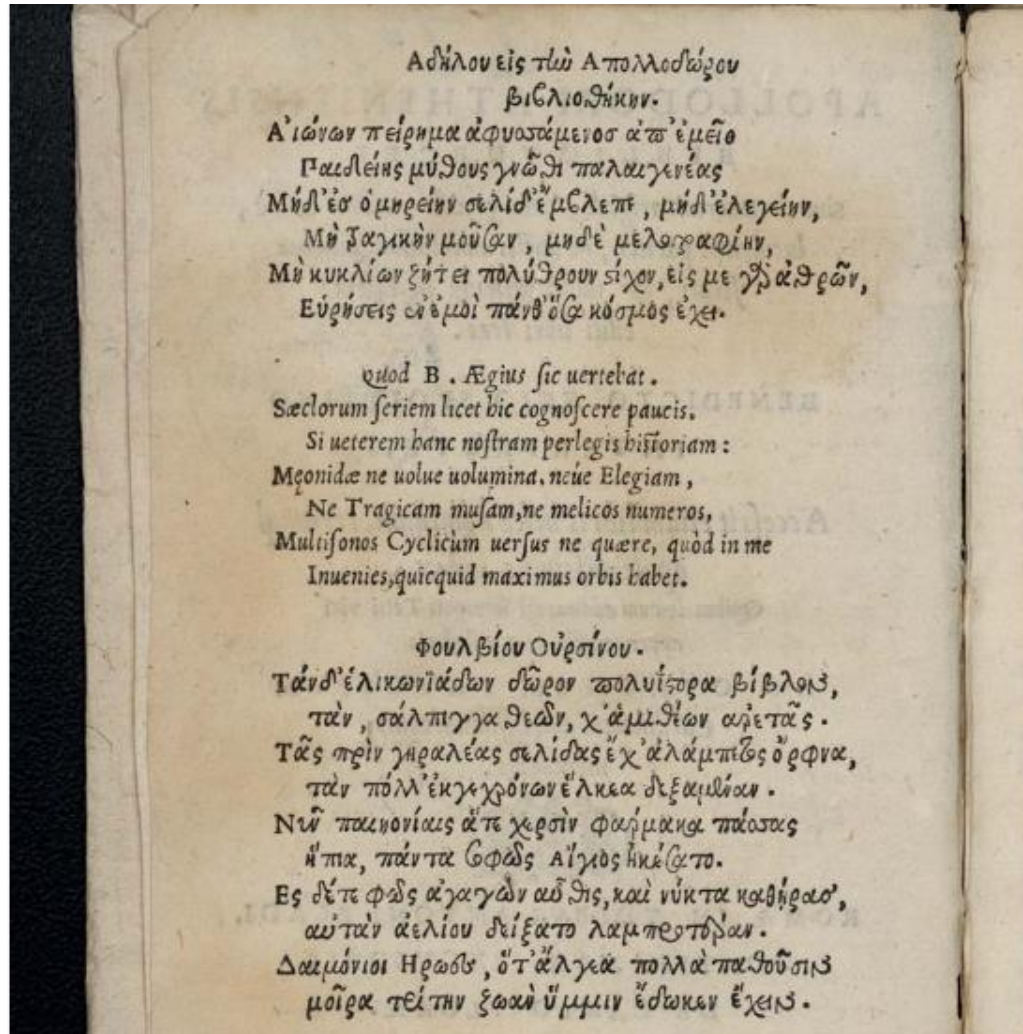 Αδήλου εἰς τὴν Απολλοδώρου
βιβλιοθήκην.
Α᾿ιώνων πείρημα ἀφυσσάμενοσ ἀπ᾿ ἐμεῖο
Παιδείης μύθους γνῶθι παλαιγενέας
Μήδ᾿ ἐσ ὁμηρείην σελίδ᾿ ἔμβλεπε, μήδ᾿ ἐλεγείην,
Μὴ τραγικὴν μοῦσαν, μηδὲ μελογραφίην,
Μὴ κυκλίων ζήτει πολύθρουν στίχον, εἰς με γὰρ ἀθρῶν,
Εὑρήσεις ἐν ἐμοὶ πάνθ᾿ ὅσα κόσμος ἔχει.
quod B. Ægius ſic uertebat.
Sæclorum ſeriem licet hic cognoſcere paucis.
Si ueterem hanc noſtram perlegis hiſtoriam:
Męonidæ ne uolue uolumina. neúe Elegiam,
Ne Tragicam muſam, ne melicos numeros,
Multiſonos Cyclicùm uerſus ne quære, quòd in me
Inuenies, quicquid maximus orbis habet.
Φουλβίου Οὐρσίνου.
Τάνδ᾿ ἑλικωνϊάδων δῶρον πολυΐστορα βίβλον,
τὰν, σάλπιγγα θεῶν, χ᾿ ἁμιθέων ἀρετᾶς.
Τᾶς πρὶν γηραλέας σελίδας ἔχ᾿ ἀλάμπετος ὄρφνα,
τὰν πόλλ᾿ ἐκγεχρόνων ἕλκεα δεξαμέναν.
Νῦν παιηονίαις ἅτε χερσὶν φαρμακα πάσσας
ἤπια, πάντα σοφῶς Αἴγιος ἠκέσατο.
Ες δέτε φῶς ἀγαγὼν αὖθις, καὶ νύκτα καθήρας,
αὐτὰν ἀελίου δείξατο λαμπροτέραν.
Δαιμόνιοι Ηρωες, ὅτ᾿ ἄλγεα πολλὰ παθοῦσιν
μοῖρα τρίτην ζωὰν ὔμμιν ἔδωκεν ἔχειν.